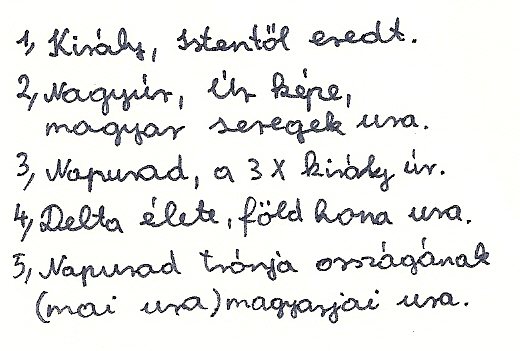 1, Király, Istentől eredt.
2, Nagyúr, Úr képe,
magyar seregek ura.
3, Napurad, a 3 X király úr.
4, Delta élete, föld hona ura.
5, Napurad trónja országának
(mai ura) magyarjai ura.